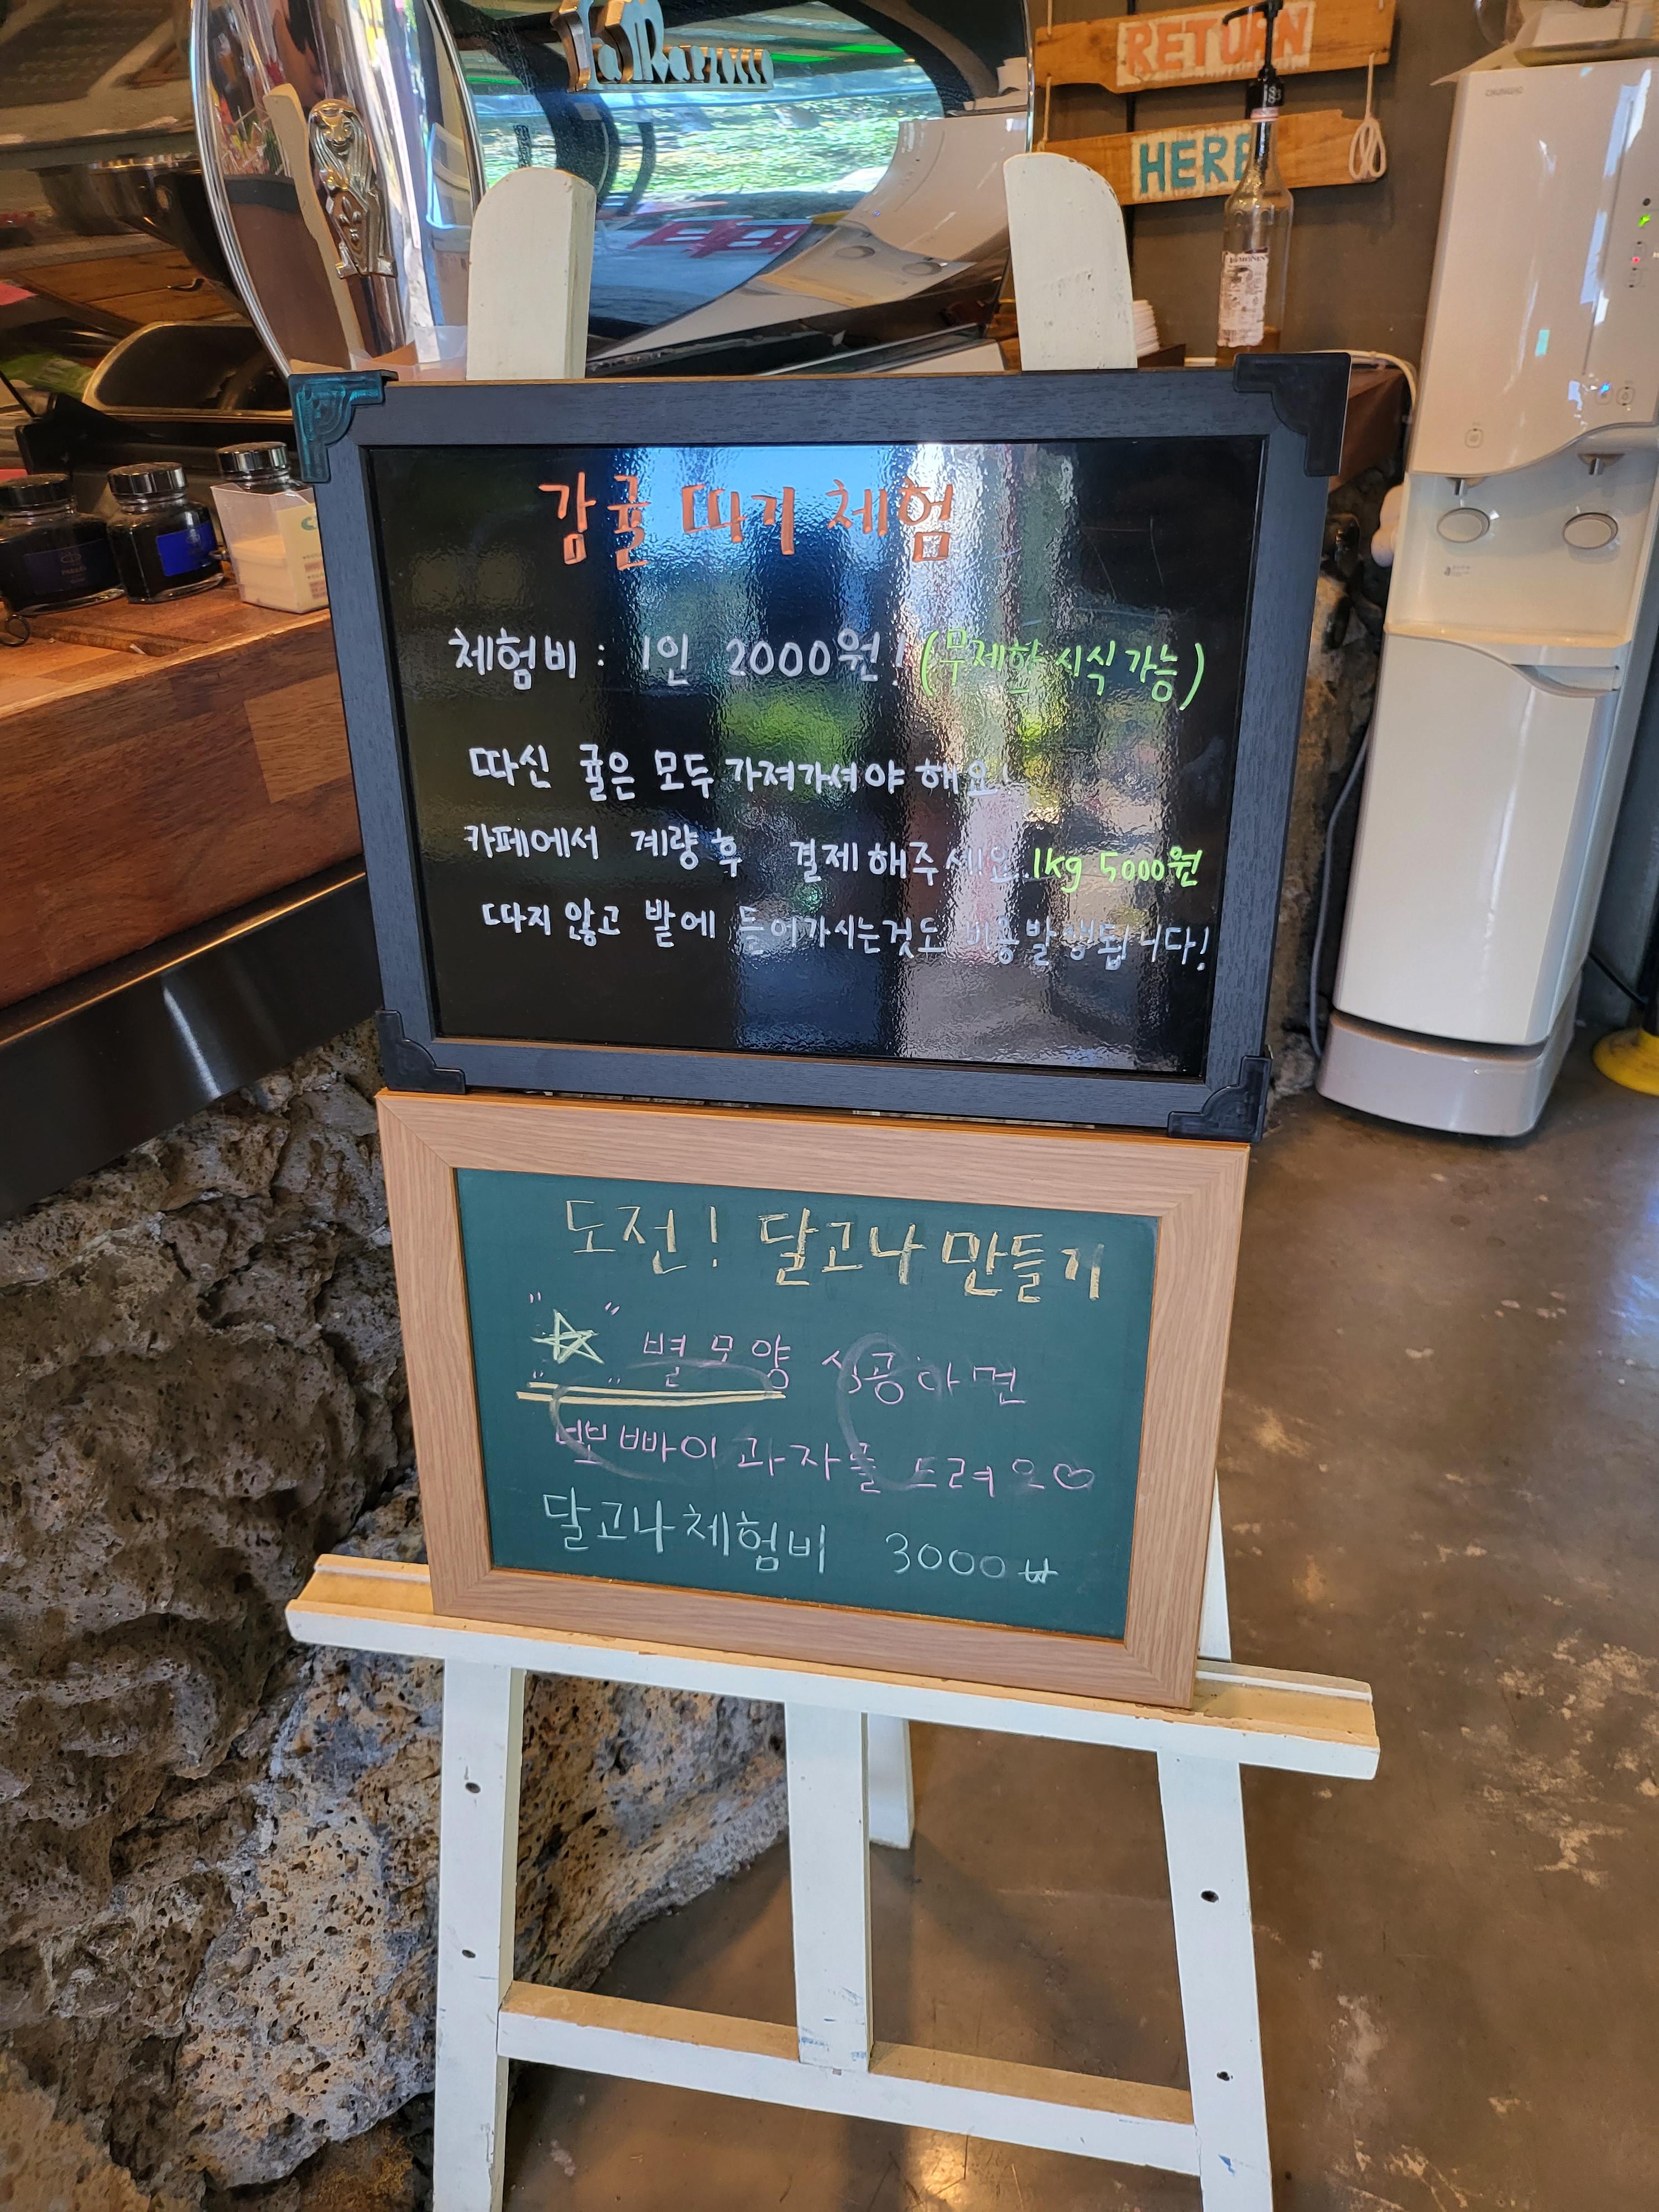 RETURN
HERE
감귤 따기 체험
체험비 : 1인 2000원! (무제한 시식 가능)
따신 귤은 모두 가져가셔야 해요!
카페에서 계량 후 결제해주세요. 1kg 5000원
따지 않고 밭에 들어가시는것도 비용발생됩니다!
도전! 달고나 만들기
별모양 성공하면
뽀빠이 과자를 드려요♡
달고나체험비 3000₩